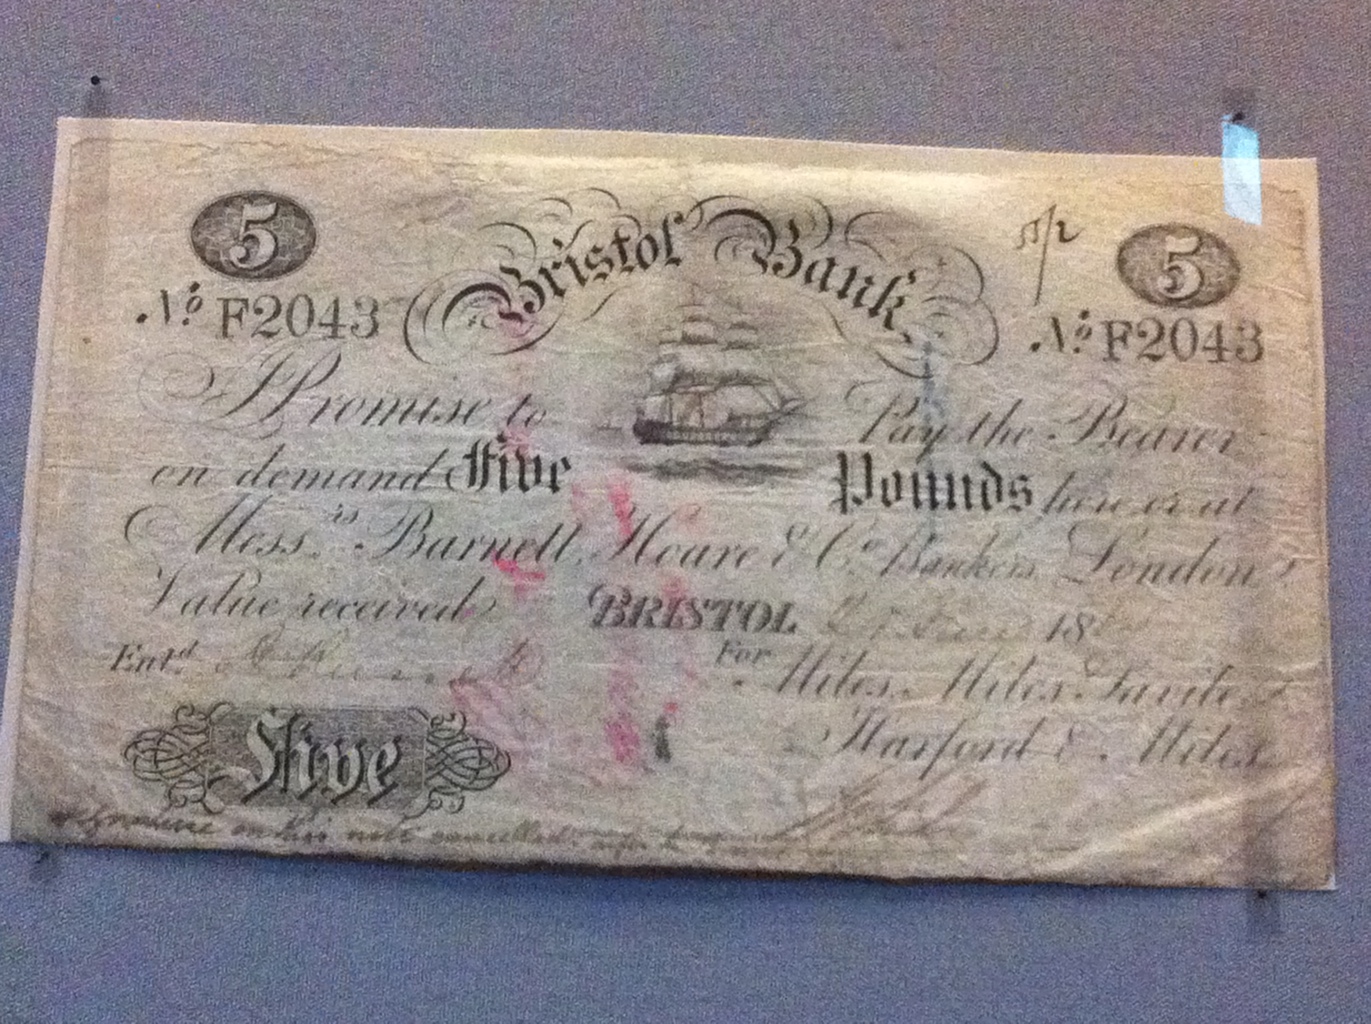 5 Bristol Bank 5
No. F2043 No. F2043
I Promise to Pay the Bearer
on demand Five Pounds here or at
Mess.rs Barnett, Hoare & Co. Bankers London
Value received BRISTOL 18
Ent.d For Miles, Miles, Savile,
Harford & Miles
Five
Signature on this note cancelled